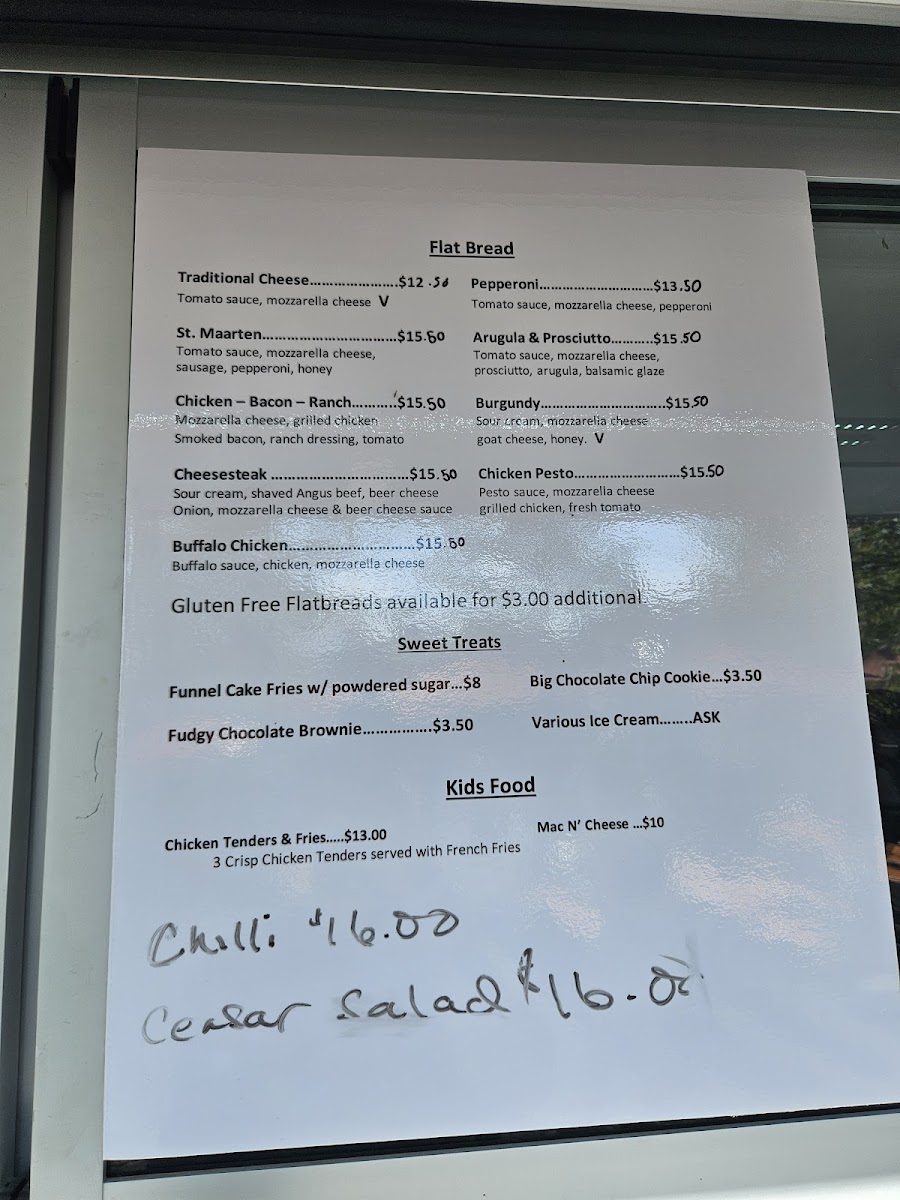 Flat Bread
Traditional Cheese.....................$12.50
Tomato sauce, mozzarella cheese V
Pepperoni............................$13.50
Tomato sauce, mozzarella cheese, pepperoni
St. Maarten.................................$15.50
Tomato sauce, mozzarella cheese,
sausage, pepperoni, honey
Arugula & Prosciutto..........$15.50
Tomato sauce, mozzarella cheese,
prosciutto, arugula, balsamic glaze
Chicken – Bacon – Ranch..........$15.50
Mozzarella cheese, grilled chicken
Smoked bacon, ranch dressing, tomato
Burgundy..............................$15.50
Sour cream, mozzarella cheese
goat cheese, honey. V
Cheesesteak ..................................$15.50
Sour cream, shaved Angus beef, beer cheese
Onion, mozzarella cheese & beer cheese sauce
Chicken Pesto..........................$15.50
Pesto sauce, mozzarella cheese
grilled chicken, fresh tomato
Buffalo Chicken...............................$15.50
Buffalo sauce, chicken, mozzarella cheese
Gluten Free Flatbreads available for $3.00 additional.
Sweet Treats
Funnel Cake Fries w/ powdered sugar...$8
Big Chocolate Chip Cookie...$3.50
Fudgy Chocolate Brownie.................$3.50
Various Ice Cream........ASK
Kids Food
Chicken Tenders & Fries.....$13.00
3 Crisp Chicken Tenders served with French Fries
Mac N' Cheese ...$10
Chilli $16.00
Ceasar Salad $16.00